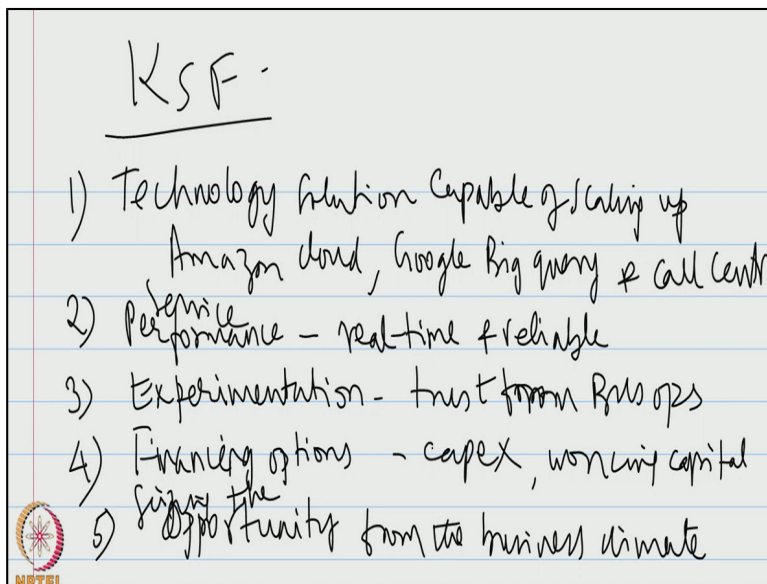 KSF.
1) Technology Solution Capable of scaling up
Amazon cloud, Google Big query & call centr
service
2) Performance – real-time & reliable
3) Experimentation - trust from Bus ops
4) Financing options - capex, working capital
Seizing the
5) Opportunity from the business climate
NPTEL